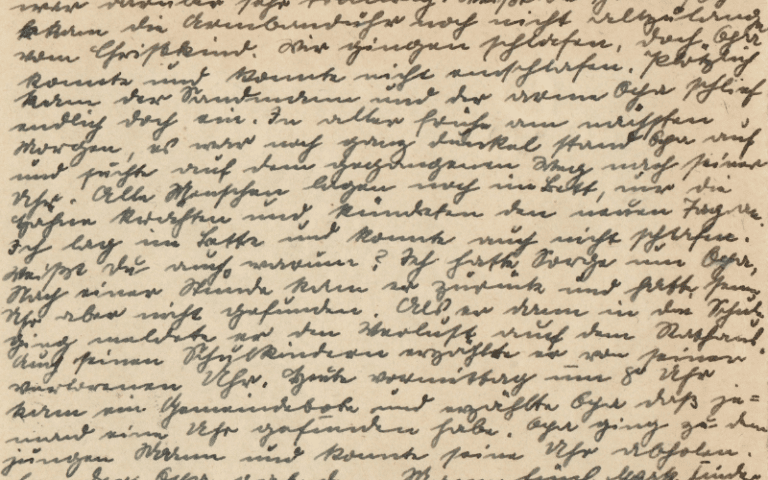 war darüber sehr
kam die Armbanduhr noch nicht allzulange
vom Christkind. Wir gingen schlafen, doch Opa
konnte und konnte nicht einschlafen. Plötzlich
kam der Sandmann und der arme Opa schlief
endlich doch ein. In aller frühe am nächsten
Morgen, es war noch ganz dunkel stand Opa auf
und suchte auf dem gegangenen Weg nach seiner
Uhr. Alle Menschen lagen noch im Bett, nur die
Hähne krachten und kündeten den neuen Tag an.
Ich lag im Bette und konnte auch nicht schlafen.
Weißt du auch warum? Ich hatte Sorge um Opa.
Nach einer Stunde kam er zurück und hatte seine
Uhr aber nicht gefunden. Als er dann in die Schule
ging meldete er den Verlust auch dem Rathaus.
Auch seinen Schulkindern erzählte er von seiner
verlorenen Uhr. Heute vormittag um 8 Uhr
kam ein Gemeindebote und erzählte Opa daß je=
mand eine Uhr gefunden habe. Opa ging zu dem
jungen Mann und konnte seine Uhr abholen.